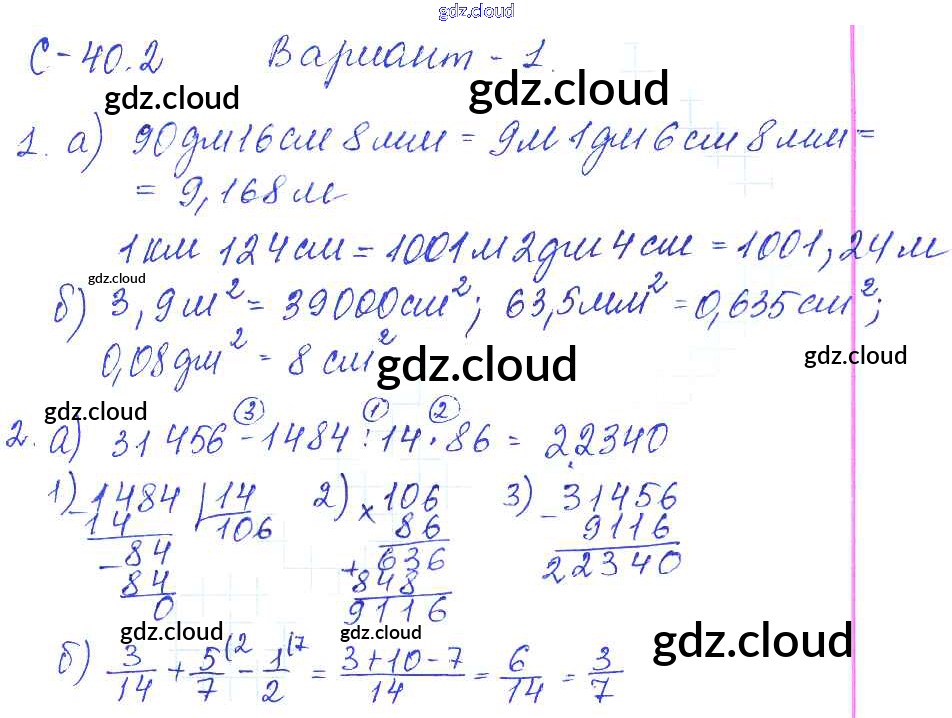 gdz.cloud
С-40.2 Вариант-1.
gdz.cloud gdz.cloud
1. а) 90дм16см 8мм = 9м 1дм 6см 8мм =
= 9,168м
1км 124см = 1001м 2дм 4см = 1001,24м
gdz.cloud
б) 3,9м² = 39000см²; 63,5мм² = 0,635см²;
0,08дм² = 8см²
gdz.cloud gdz.cloud
gdz.cloud
③ ① ②
2. а) 31456 - 1484 : 14 · 86 = 22340
1) 1484 | 14 2) × 106 3) 31456
- 14 106 86 - 9116
- 84 + 636 22340
84 848
0 9116
gdz.cloud gdz.cloud gdz.cloud
б) 3/14 + 5/7 (2 - 1/2 (7 = (3+10-7)/14 = 6/14 = 3/7